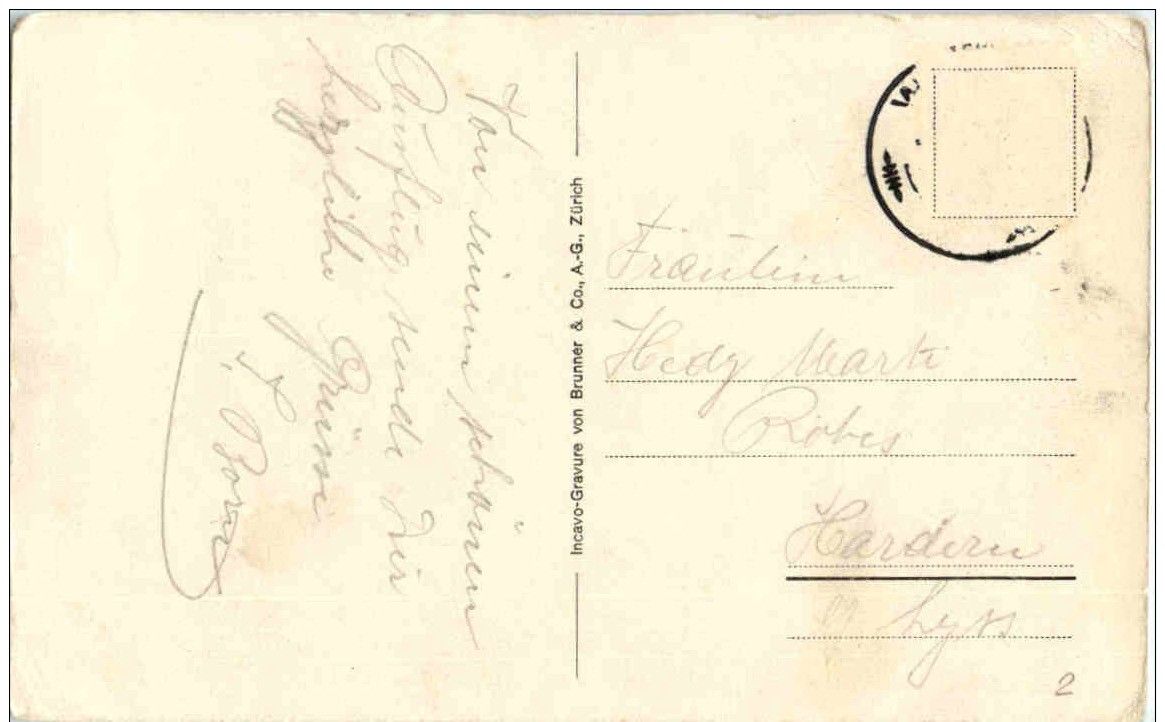 Von einem schönen
Ausflug sende dir
herzliche Grüsse
Born
Incavo-Gravure von Brunner & Co., A.-G., Zürich
Fräulein
Hedy Marti
Robes
Hardern
Lyss
2